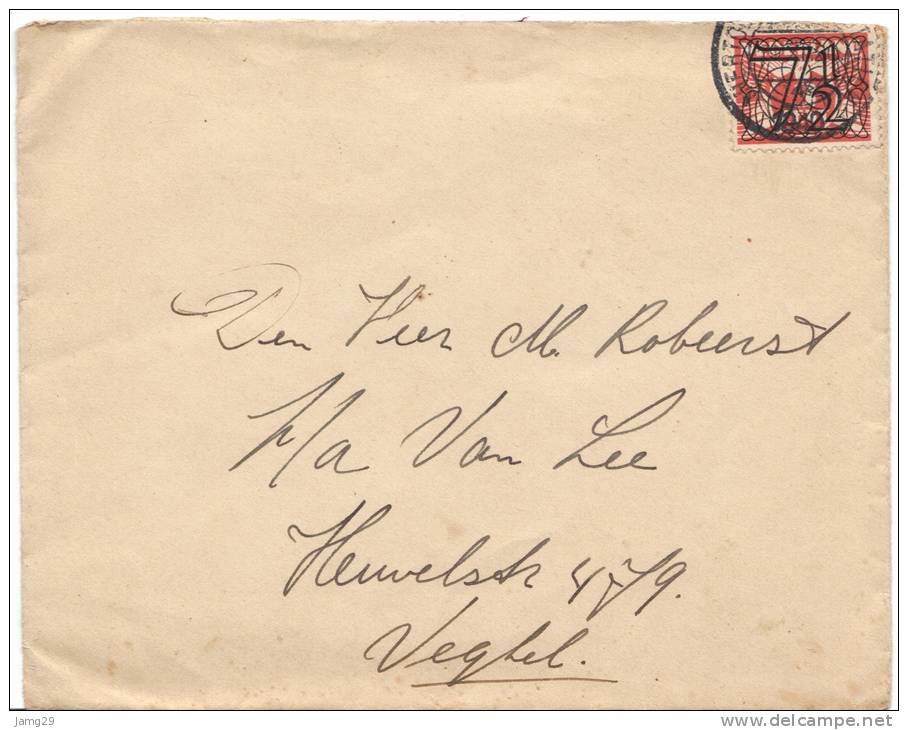 7 1/2
Den Heer M. Robeerst
p/a Van Lee
Heuvelstr
Veghel.
Jamg29
www.delcampe.net